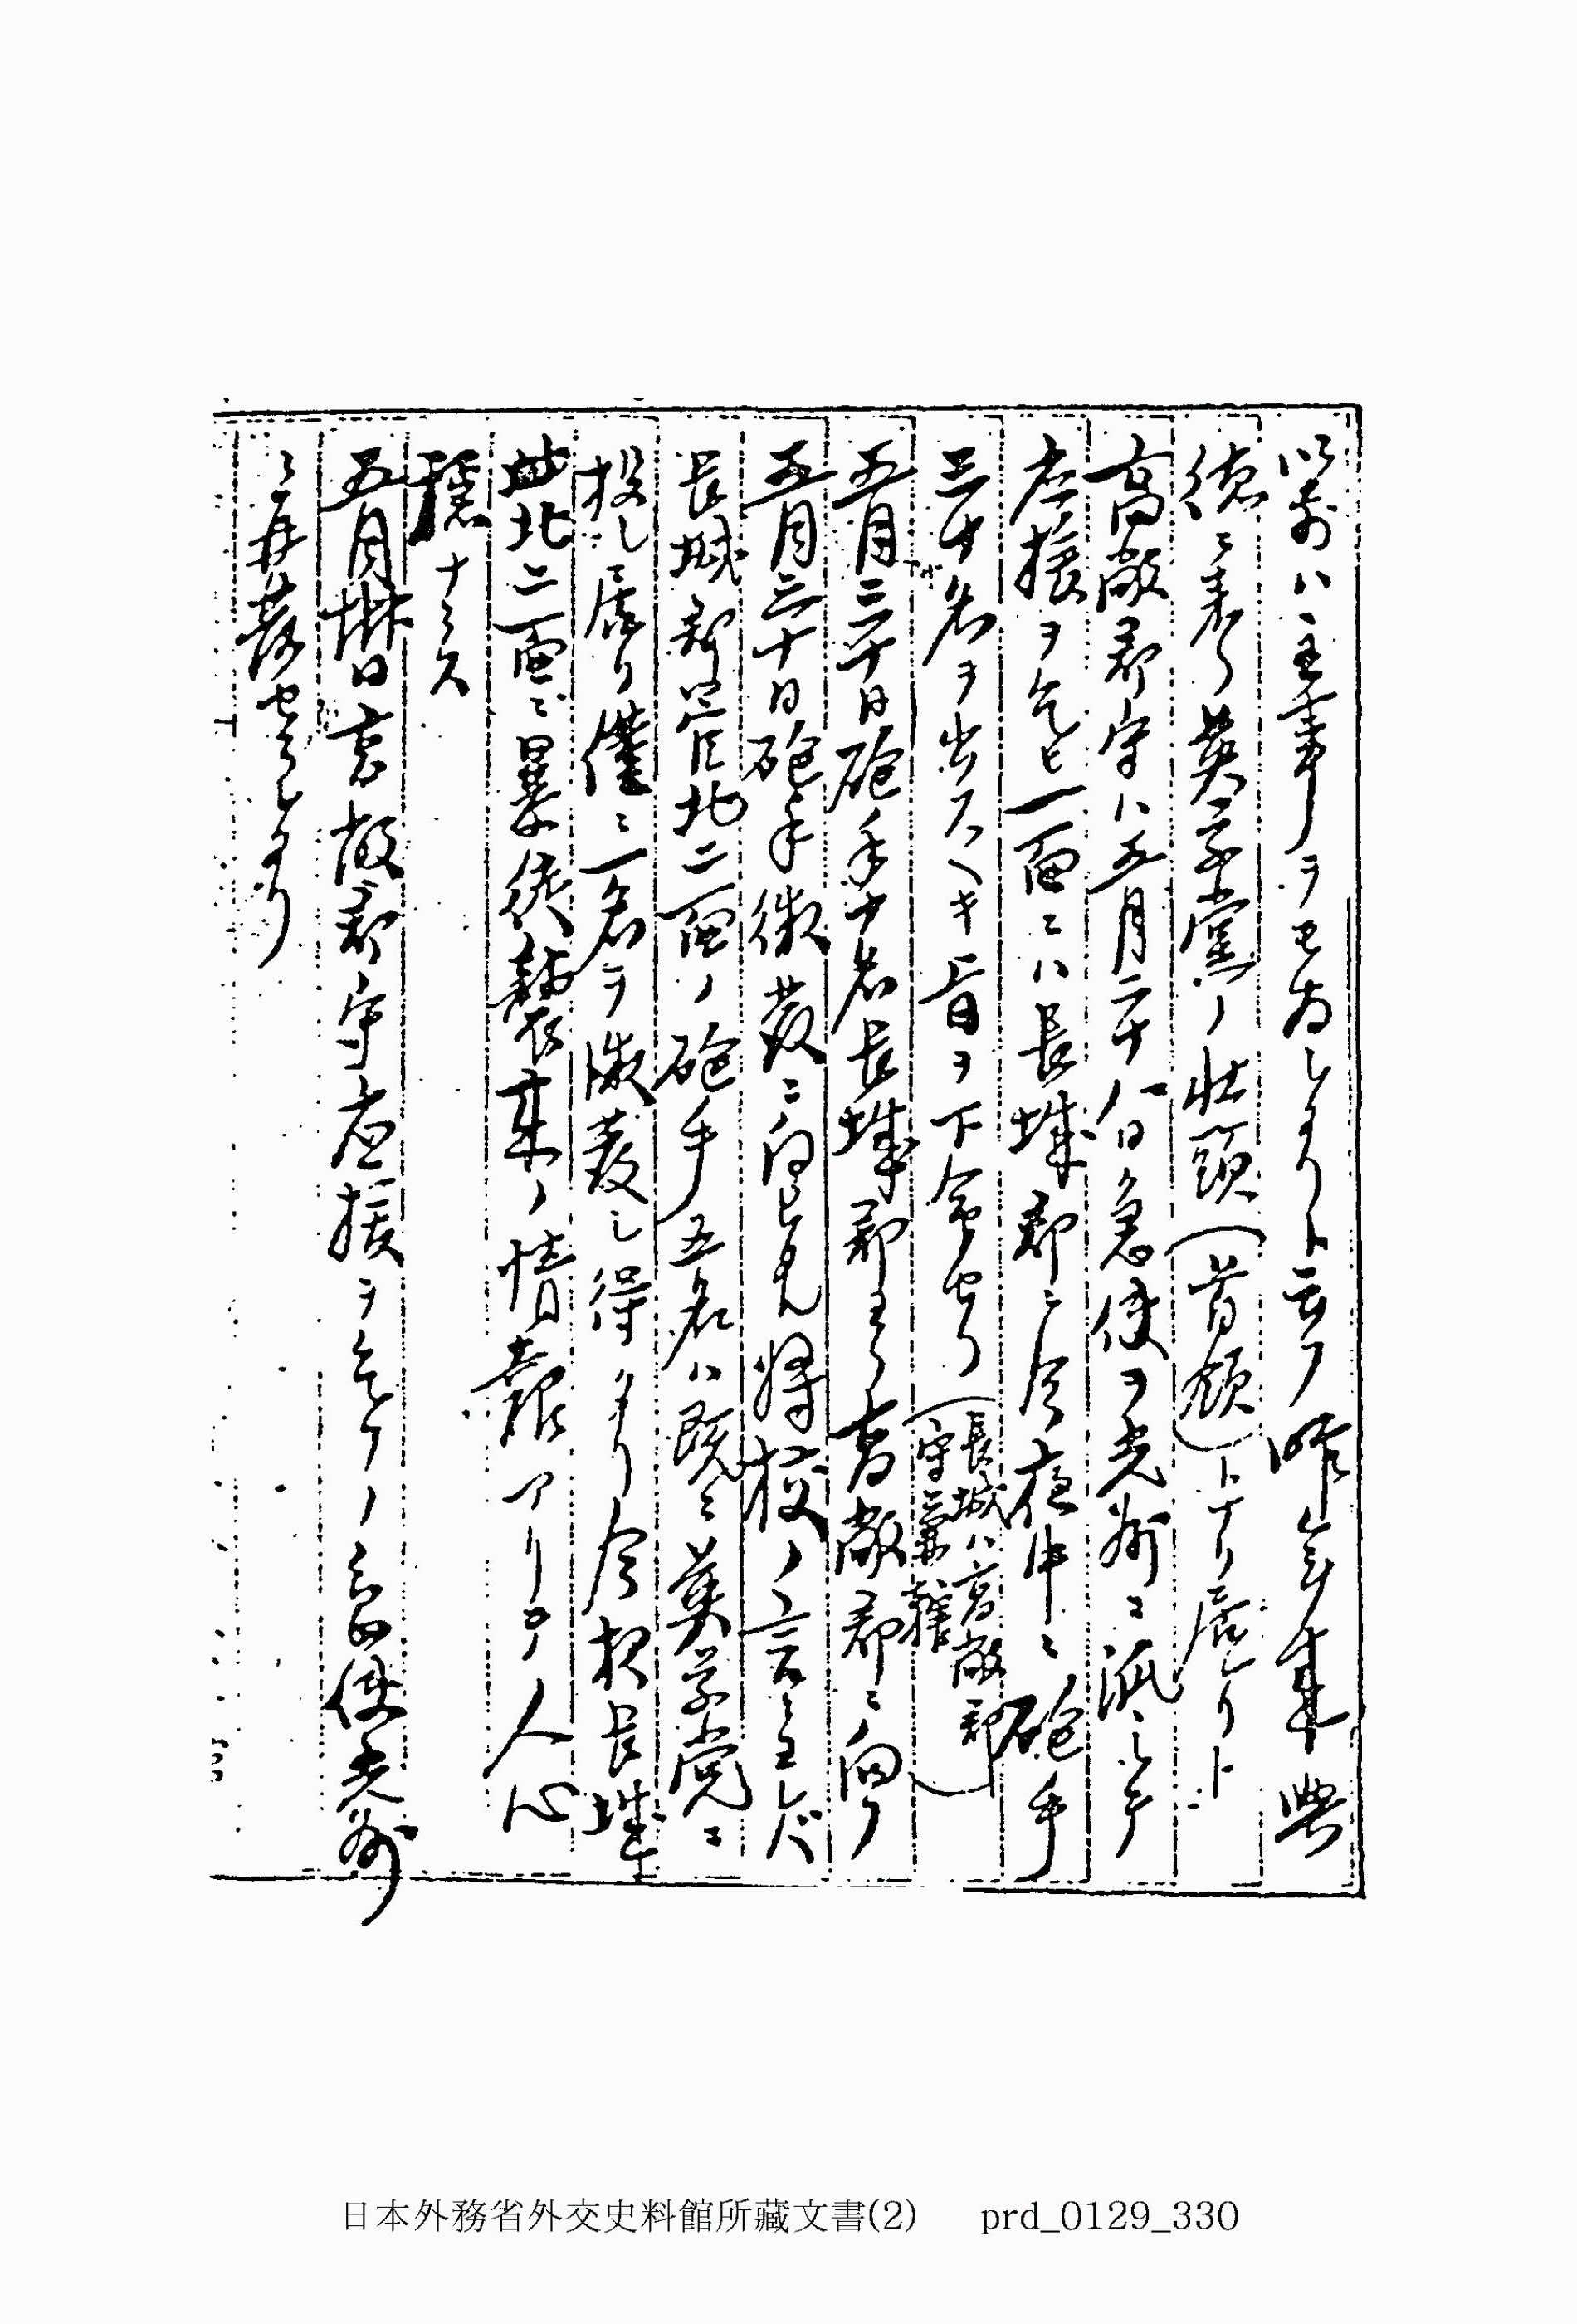 以前ハ主事ヲモ為シタリト云フ昨年来興
徳ニ来リ英学党ノ壮頭(首領)トナリ居レリト
高敞郡守ハ五月二十八日急使ヲ光州ニ派シテ
応援ヲ乞ヒ一面ニハ長城郡ニ今夜中ニ砲手
三十名ヲ出スヘキ旨ヲ下令セリ(長城ハ高敞郡
守ニ兼轄)
五月三十日砲手十名長城郡ヨリ高敞郡ニ向フ
五月三十日砲手徴発ニ向ヒタル将校ノ言ニヨレバ
長城郡管北二面ノ砲手五名ハ既ニ英学党ニ
投シ居リ僅ニ一名ヲ徴発シ得タリ今朝長城
北二面ニ暴徒襲来ノ情報アリテ人心
穏ナラス
五月卅一日高敞郡守応援ヲ乞フノ急使光州
ニ再発セラレタリ
日本外務省外交史料館所藏文書(2) prd_0129_330